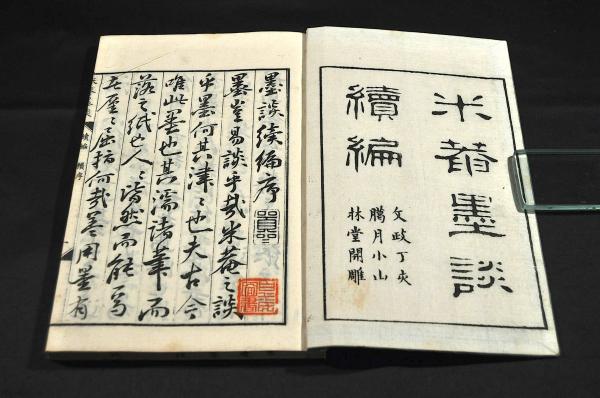 米葊墨談
續編
文政丁亥
臘月小山
林堂開雕
墨談續編序
墨豈易談乎哉米菴之談
乎墨何其津〻也夫古今
唯此墨也其濡諸筆而
落之紙也人〻皆然而能寫
何哉蓋用墨有